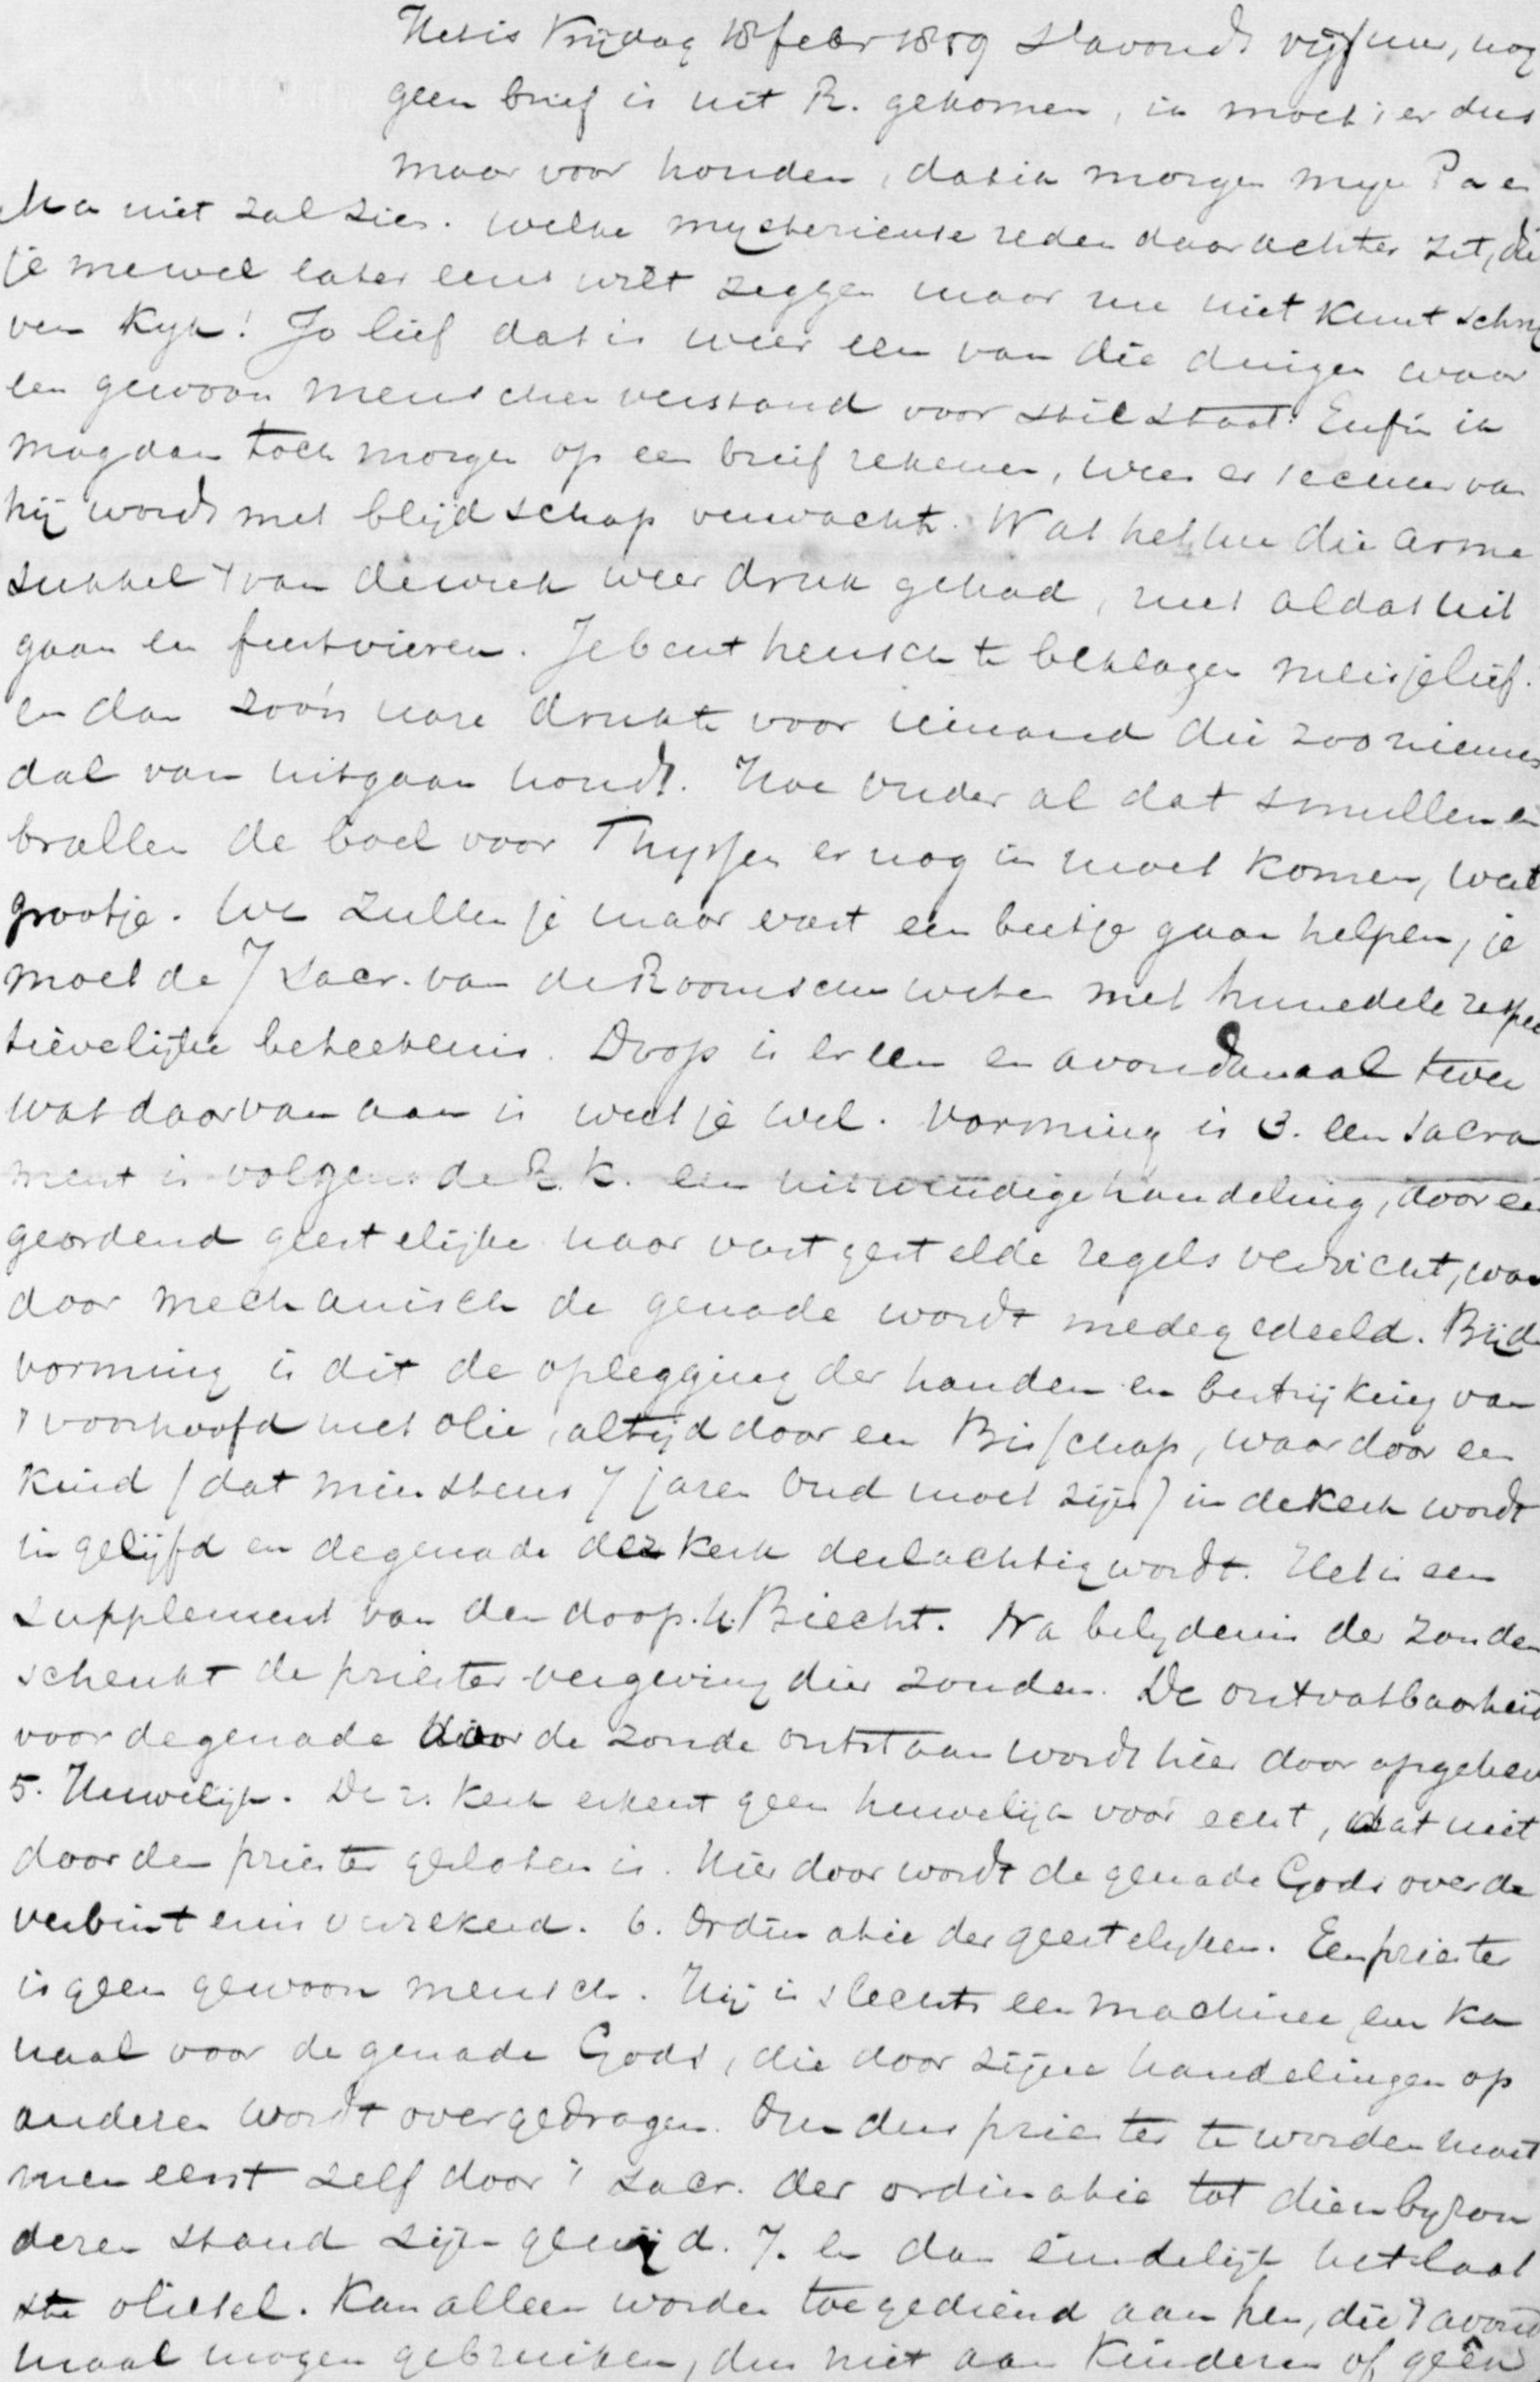 Het is Vrijdag 18 febr 1859 s'avonds vijf uur, nog
geen brief is uit R. gekomen, ik moet 't er dus
maar voor houden, dat ik morgen mijn Pa en
Ma niet zal zien. Welke mysterieuse reden daar achter zit, die
je me wel later eens wilt zeggen maar nu niet kunt schrij
ven kyk! Jo lief dat is weer een van die dingen waar
een gewoon menschenverstand voor stilstaat! Enfin ik
mag dan toch morgen op een brief rekenen, wees er zeker van
hij wordt met blijdschap verwacht. Wat heb je die arme
sukkel 't van de week weer druk gehad, met al dat uit
gaan en feestvieren. Je bent heusch te beklagen meisjelief.
en dan zoo'n nare drukte voor iemand die zoo niemen
dal van uitgaan houdt. Hoe onder al dat smullen en
brallen de boel voor Thyssen er nog in moet komen, wat
grootje. We zullen je maar vast een beetje gaan helpen, je
moet de 7 sacr. van de Roomschen weten met hun edele respec
tievelijke beteekenis. Doop is er een en avondmaal twee
wat daarvan aan is weet je wel. Vorming is 3. een sacra
ment is volgens de R. K. een uitwendige handeling, door een
geordend geestelijke naar vastgestelde regels verricht, waar
door mechanisch de genade wordt medegedeeld. Bij de
vorming is dit de oplegging der handen en bestrijking van
't voorhoofd met olie, altijd door een Bisschop, waardoor een
kind (dat minstens 7 jaren oud moet zijn) in de kerk wordt
ingelijfd en de genade der kerk deelachtig wordt. Het is een
supplement van den doop. 4. Biecht. Na belydenis der zonden
schenkt de priester vergeving dier zonden. De ontvatbaarheid
voor de genade door de zonde ontstaan wordt hier door opgeheven
5. Huwelijk. De r. kerk erkent geen huwelijk voor echt, dat niet
door den priester gesloten is. Hier door wordt de genade Gods over de
verbintenis verzekerd. 6. Ordinatie der geestelyken. Een priester
is geen gewoon mensch. Hij is slechts een machine, een ka
naal voor de genade Gods, die door zijne handelingen op
anderen wordt overgedragen. Om dus priester te worden moet
men eerst zelf door 't sacr. der ordinatie tot dien byzon
deren stand zijn gewijd. 7. en dan eindelijk het laat
ste oliesel. Kan alleen worden toegediend aan hen, die 't avond
maal mogen gebruiken, dus niet aan kinderen of geên